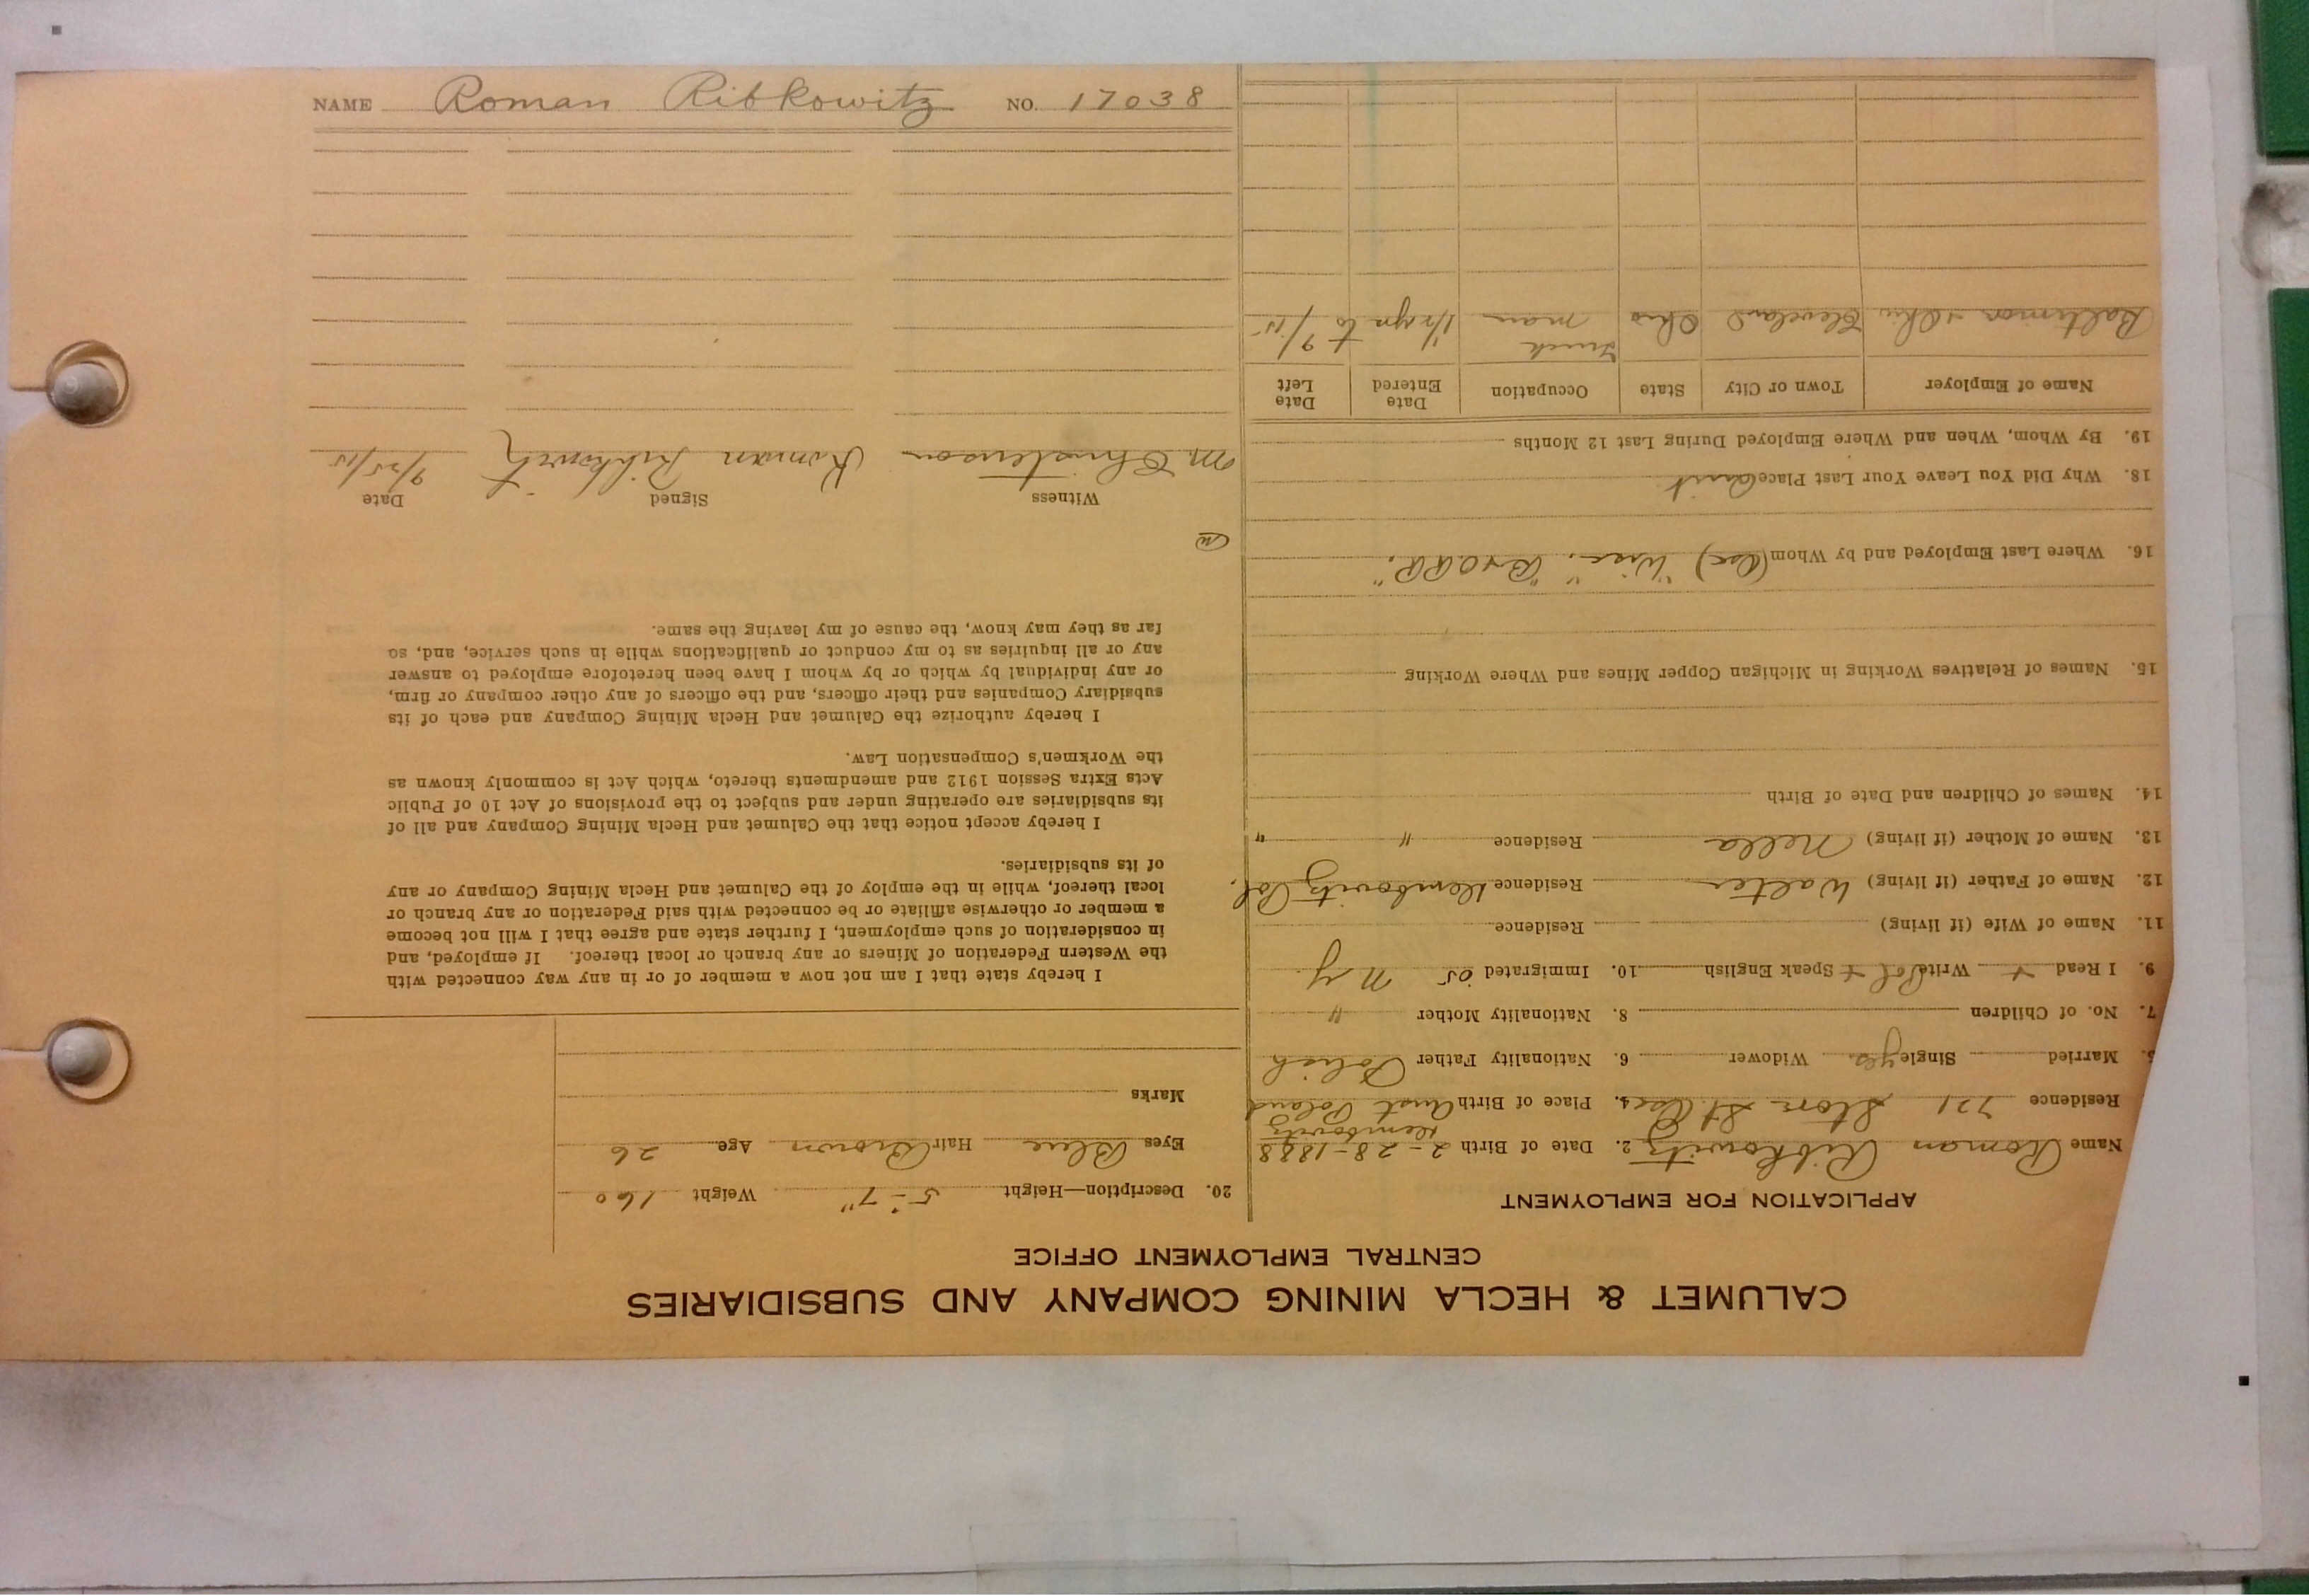 NAME Roman Ribkowitz NO. 17038
CALUMET & HECLA MINING COMPANY AND SUBSIDIARIES
CENTRAL EMPLOYMENT OFFICE
APPLICATION FOR EMPLOYMENT
Name Roman Ribkowitz 2. Date of Birth 2-28-1888
Residence 721 St. 4. Place of Birth Aust Poland
5. Married Single yes Widower 6. Nationality Father Polish
7. No. of Children 8. Nationality Mother "
9. I Read + Write Pol + Speak English 10. Immigrated 05 N Y.
11. Name of Wife (if living) Residence
12. Name of Father (if living) Walter Residence Pol.
13. Name of Mother (if living) Mella Residence " "
14. Names of Children and Date of Birth
15. Names of Relatives Working in Michigan Copper Mines and Where Working
16. Where Last Employed and by Whom "B&ORR."
18. Why Did You Leave Your Last Place Quit
19. By Whom, When and Where Employed During Last 12 Months
Name of Employer Town or City State Occupation Date Entered Date Left
Baltimor & Ohio Cleveland Ohio man 1/2 yr to 9/15
20. Description—Height 5-7" Weight 160
Eyes Blue Hair Brown Age 26
Marks
I hereby state that I am not now a member of or in any way connected with
the Western Federation of Miners or any branch or local thereof. If employed, and
in consideration of such employment, I further state and agree that I will not become
a member or otherwise affiliate or be connected with said Federation or any branch or
local thereof, while in the employ of the Calumet and Hecla Mining Company or any
of its subsidiaries.
I hereby accept notice that the Calumet and Hecla Mining Company and all of
its subsidiaries are operating under and subject to the provisions of Act 10 of Public
Acts Extra Session 1912 and amendments thereto, which Act is commonly known as
the Workmen's Compensation Law.
I hereby authorize the Calumet and Hecla Mining Company and each of its
subsidiary Companies and their officers, and the officers of any other company or firm,
or any individual by which or by whom I have been heretofore employed to answer
any or all inquiries as to my conduct or qualifications while in such service, and, so
far as they may know, the cause of my leaving the same.
Witness Signed Date
M Christenson Roman Ribkowitz 9/25/15